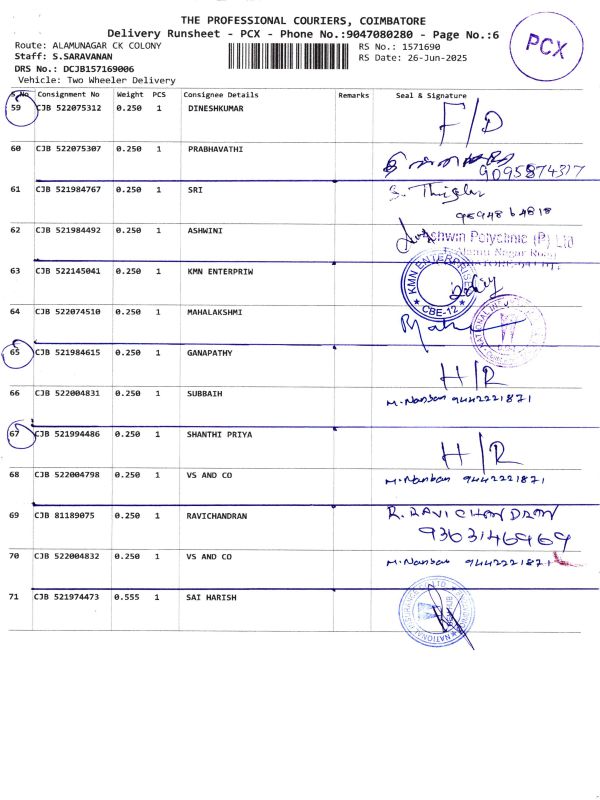 THE PROFESSIONAL COURIERS, COIMBATORE
Delivery Runsheet - PCX - Phone No.:9047080280 - Page No.:6
PCX
Route: ALAMUNAGAR CK COLONY
RS No.: 1571690
Staff: S.SARAVANAN
RS Date: 26-Jun-2025
DRS No.: DCJB157169006
Vehicle: Two Wheeler Delivery
S.No Consignment No Weight PCS Consignee Details Remarks Seal & Signature
59 CJB 522075312 0.250 1 DINESHKUMAR F/D
60 CJB 522075307 0.250 1 PRABHAVATHI
9095874317
61 CJB 521984767 0.250 1 SRI
9594864818
62 CJB 521984492 0.250 1 ASHWINI Ashwin Polyclinic (P) Ltd
Alamu Nagar Road
63 CJB 522145041 0.250 1 KMN ENTERPRIW KMN ENTERPRISE
CBE-12
64 CJB 522074510 0.250 1 MAHALAKSHMI
65 CJB 521984615 0.250 1 GANAPATHY H/R
66 CJB 522004831 0.250 1 SUBBAIH M. Nanban 9442221871
67 CJB 521994486 0.250 1 SHANTHI PRIYA H/R
68 CJB 522004798 0.250 1 VS AND CO M. Nanban 9442221871
69 CJB 81189075 0.250 1 RAVICHANDRAN R. RAVICHANDRAN
9363146969
70 CJB 522004832 0.250 1 VS AND CO M. Nanban 9442221871
71 CJB 521974473 0.555 1 SAI HARISH